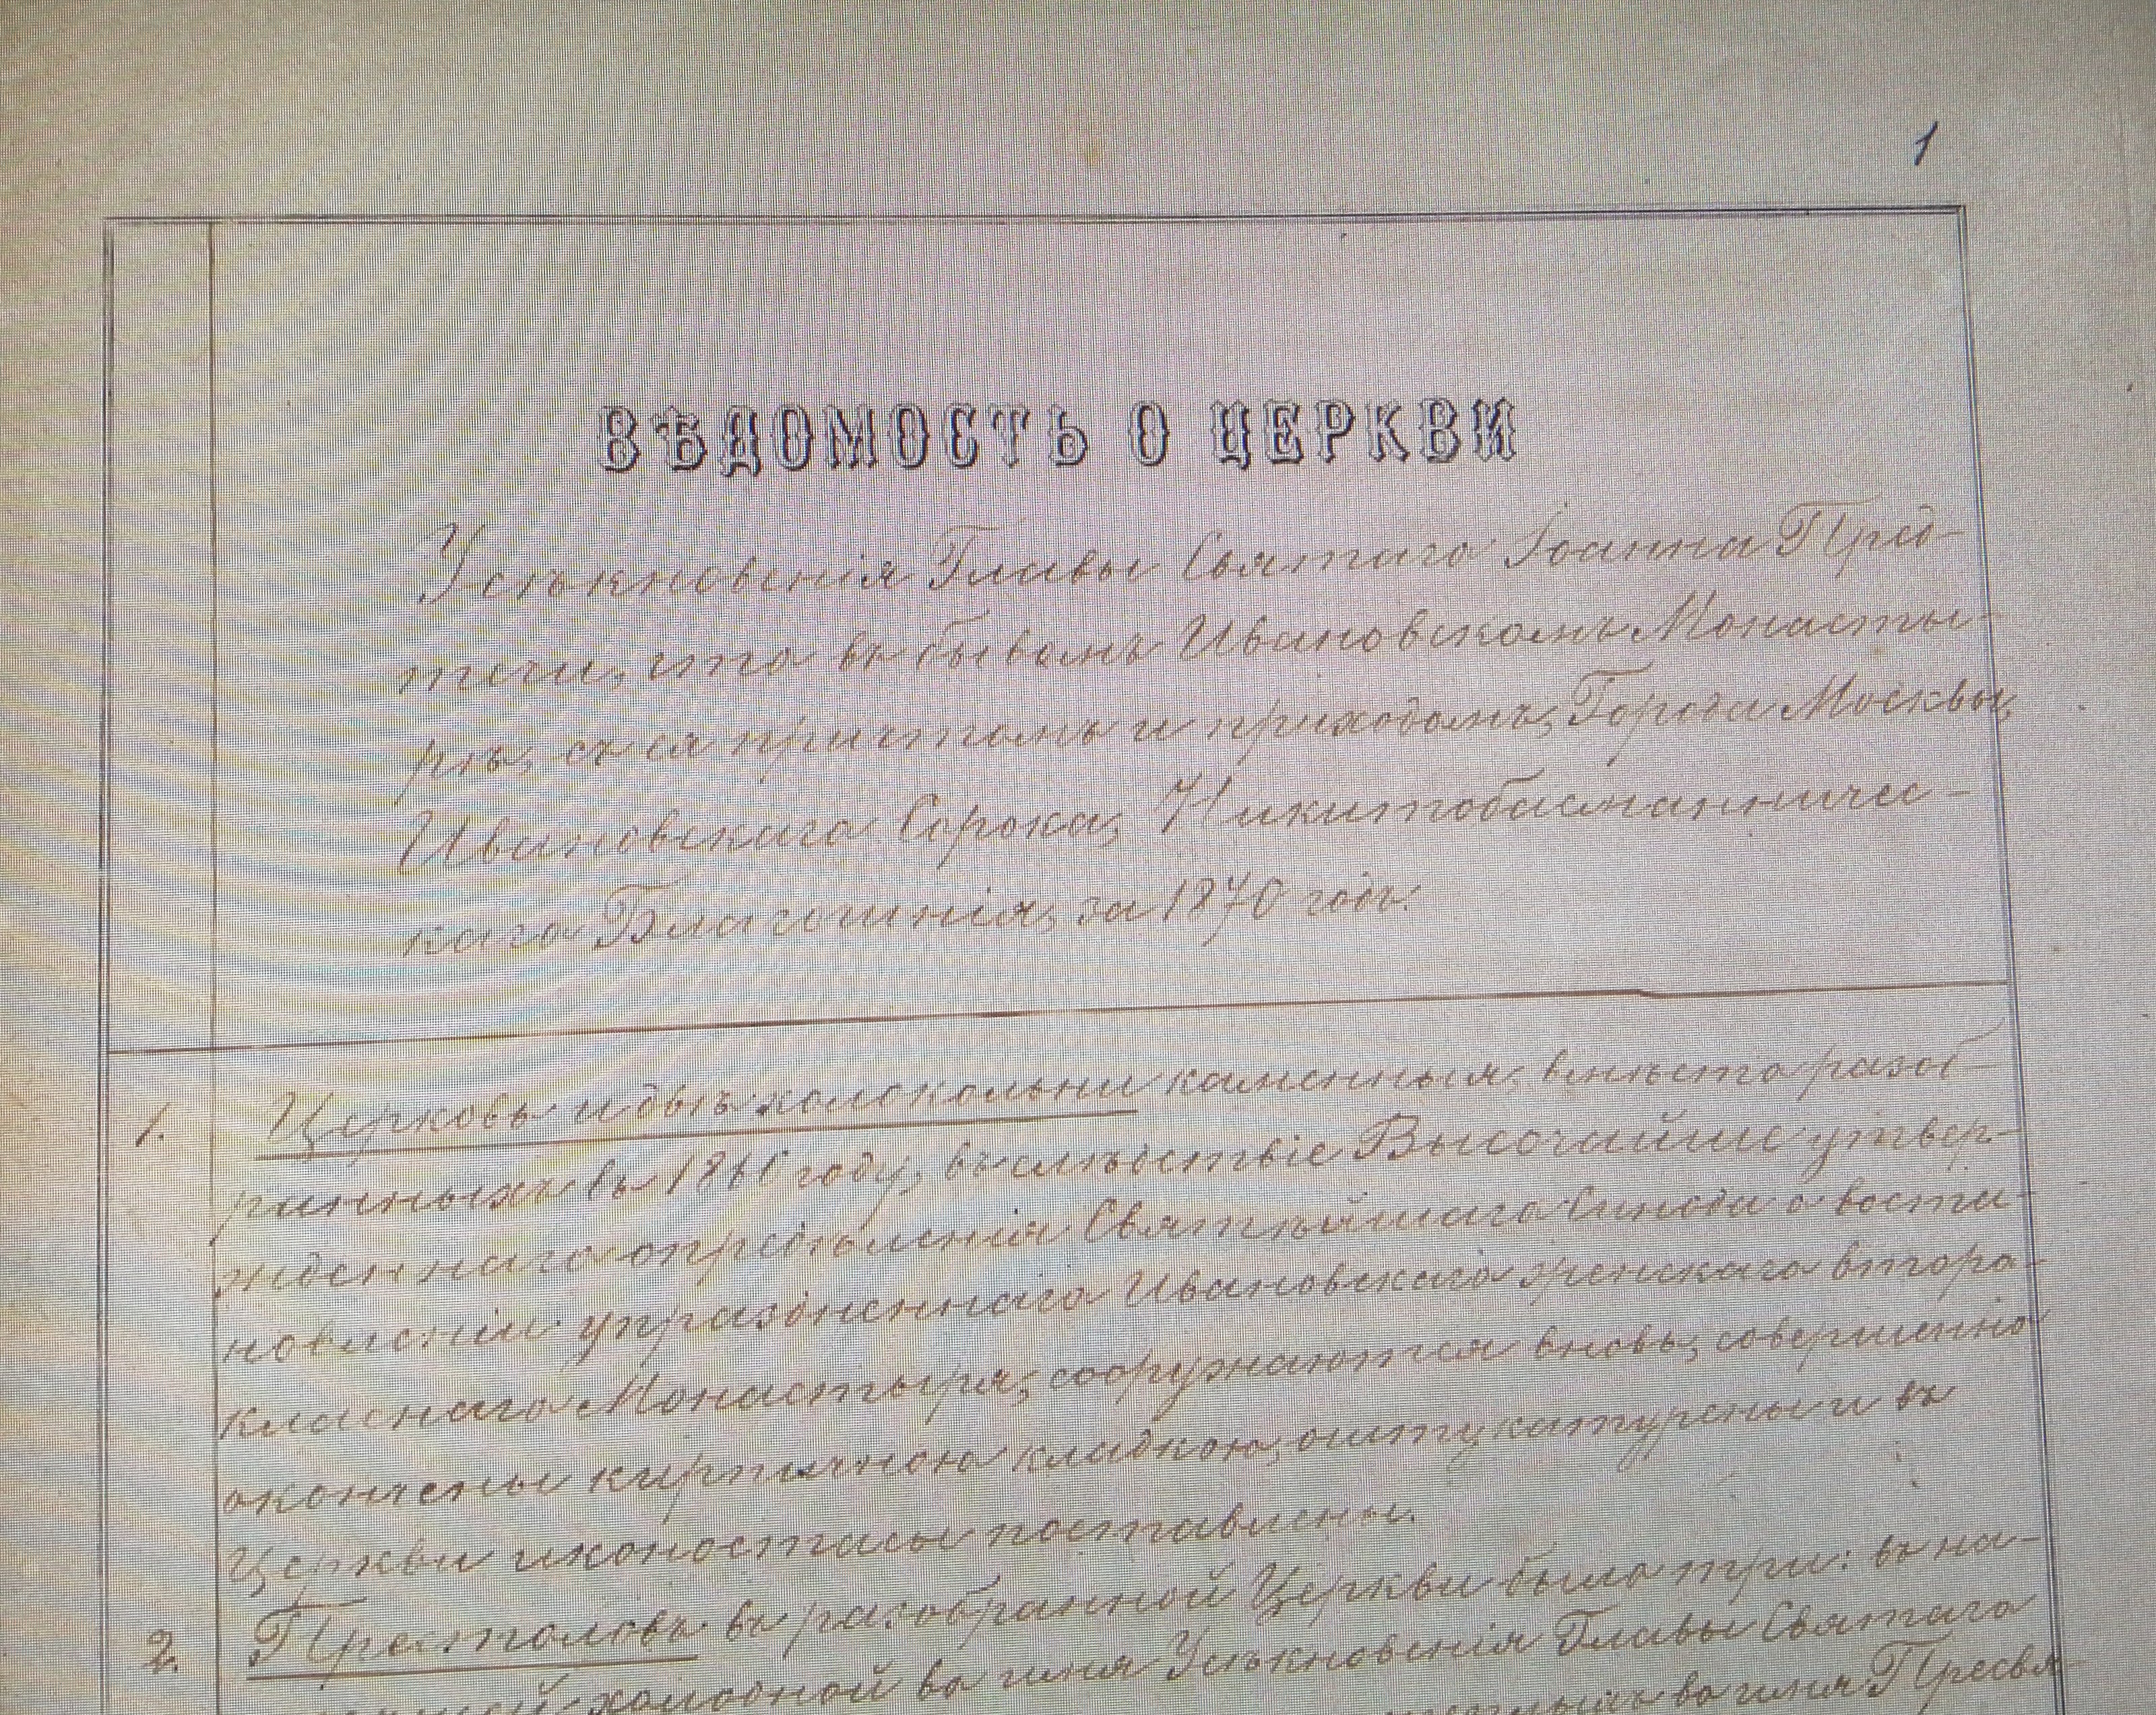 1
ВѢДОМОСТЬ О ЦЕРКВИ
Усѣкновенія Главы Святаго Іоанна Пред-
течи, что въ бывшемъ Ивановскомъ Монасты-
рѣ, съ ея причтомъ и приходомъ, Города Москвы,
Ивановскаго Сорока, Никитобасманничес-
каго Благочинія, за 1870 годъ.
1. Церковь и двѣ колокольни каменныя, вмѣсто разоб-
ранныхъ въ году, въ слѣдствіе Высочайше утвер-
жденнаго опредѣленія Святѣйшаго Синода о воста-
новленіи упраздненнаго Ивановскаго женскаго второ-
класнаго Монастыря, сооружаются вновь, совершенно
окончены кирпичною кладкою, оштукатурены и въ
Церкви иконостасы поставлены.
2. Престоловъ въ разобранной Церкви было три: въ на-
холодной во имя Усѣкновенія Главы Святаго
во имя Пресвя-